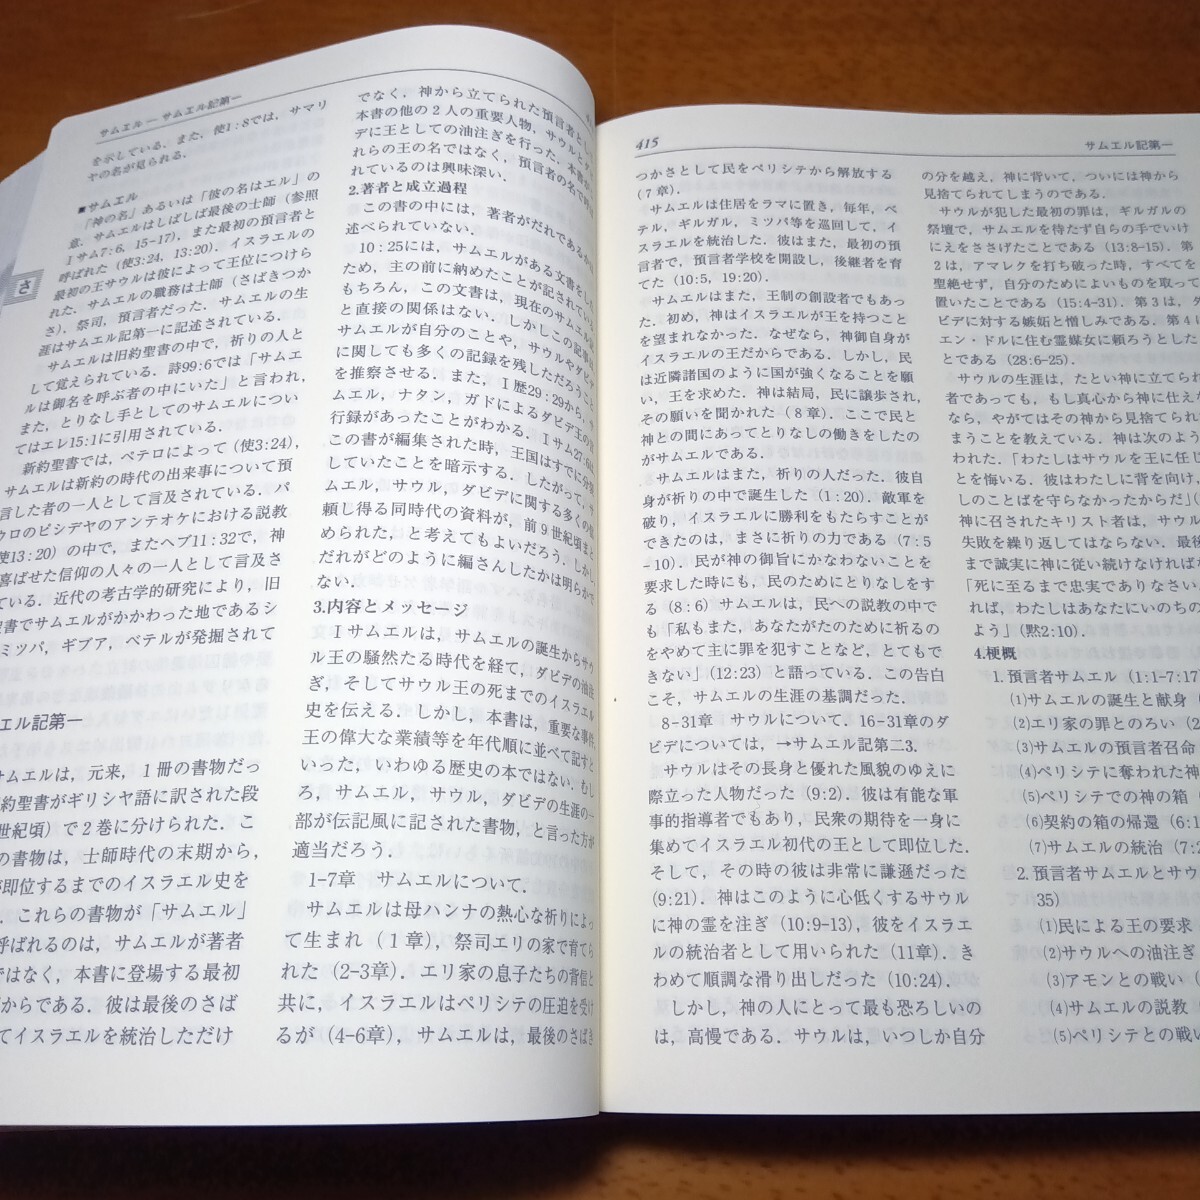 サムエル — サムエル記第一
を示している．また，使1：8では，サマリ
ヤの名が見られる．
■サムエル
「神の名」あるいは「彼の名はエル」の
意．サムエルはしばしば最後の士師（参照
Ⅰサム7：6，15-17），また最初の預言者と
呼ばれた（使3:24，13:20）．イスラエルの
最初の王サウルは彼によって王位につけら
れた．サムエルの職務は士師（さばきつか
さ），祭司，預言者だった．サムエルの生
涯はサムエル記第一に記述されている．
サムエルは旧約聖書の中で，祈りの人と
して覚えられている．詩99:6では「サムエ
ルは御名を呼ぶ者の中にいた」と言われ，
また，とりなし手としてのサムエルについ
てはエレ15:1に引用されている．
新約聖書では，ペテロによって（使3:24），
サムエルは新約の時代の出来事について預
言した者の一人として言及されている．パ
ウロのピシデヤのアンテオケにおける説教
使13：20）の中で，またヘブ11：32で，神
喜ばせた信仰の人々の一人として言及さ
ている．近代の考古学的研究により，旧
聖書でサムエルがかかわった地であるシ
ミツパ，ギブア，ベテルが発掘されて
さ
エル記第一
サムエルは，元来，1冊の書物だっ
約聖書がギリシヤ語に訳された段
世紀頃）で2巻に分けられた．こ
の書物は，士師時代の末期から，
が即位するまでのイスラエル史を
．これらの書物が「サムエル」
呼ばれるのは，サムエルが著者
ではなく，本書に登場する最初
だからである．彼は最後のさば
てイスラエルを統治しただけ
でなく，神から立てられた預言者とし
本書の他の2人の重要人物，サウルと
デに王としての油注ぎを行った．本書が
れらの王の名ではなく，預言者の名で呼
れているのは興味深い．
2.著者と成立過程
この書の中には，著者がだれであるか
述べられていない．
10：25には，サムエルがある文書をし
ため，主の前に納めたことが記されている
もちろん，この文書は，現在のサムエル記
と直接の関係はない．しかしこの記事は
サムエルが自分のことや，サウルやダビデ
に関しても多くの記録を残しただろうこと
を推察させる．また，Ⅰ歴29：29から，サ
ムエル，ナタン，ガドによるダビデ王の言
行録があったことがわかる．Ⅰサム27:6は
この書が編集された時，王国はすでに分裂
していたことを暗示する．したがって，サ
ムエル，サウル，ダビデに関する多くの信
頼し得る同時代の資料が，前9世紀頃まと
められた，と考えてもよいだろう．しかし，
だれがどのように編さんしたかは明らかで
ない．
3.内容とメッセージ
Ⅰサムエルは，サムエルの誕生からサウ
ル王の騒然たる時代を経て，ダビデの油注
ぎ，そしてサウル王の死までのイスラエル
史を伝える．しかし，本書は，重要な事件，
王の偉大な業績等を年代順に並べて記すと
いった，いわゆる歴史の本ではない．むし
ろ，サムエル，サウル，ダビデの生涯の一
部が伝記風に記された書物，と言った方が
適当だろう．
1-7章　サムエルについて．
サムエルは母ハンナの熱心な祈りによっ
て生まれ（1章），祭司エリの家で育てら
れた（2-3章）．エリ家の息子たちの背信と
共に，イスラエルはペリシテの圧迫を受け
るが（4-6章），サムエルは，最後のさばき
415
サムエル記第一
つかさとして民をペリシテから解放する
（7章）．
サムエルは住居をラマに置き，毎年，ベ
テル，ギルガル，ミツパ等を巡回して，イ
スラエルを統治した．彼はまた，最初の預
言者で，預言者学校を開設し，後継者を育
てた（10:5，19:20）．
サムエルはまた，王制の創設者でもあっ
た．初め，神はイスラエルが王を持つこと
を望まれなかった．なぜなら，神御自身が
イスラエルの王だからである．しかし，民
は近隣諸国のように国が強くなることを願
い，王を求めた．神は結局，民に譲歩され，
その願いを聞かれた（8章）．ここで民と
神との間にあってとりなしの働きをしたの
がサムエルである．
サムエルはまた，祈りの人だった．彼自
身が祈りの中で誕生した（1：20）．敵軍を
破り，イスラエルに勝利をもたらすことが
できたのは，まさに祈りの力である（7：5
-10）．民が神の御旨にかなわないことを
要求した時にも，民のためにとりなしをす
る（8：6）サムエルは，民への説教の中で
も「私もまた，あなたがたのために祈るの
をやめて主に罪を犯すことなど，とてもで
きない」（12:23）と語っている．この告白
こそ，サムエルの生涯の基調だった．
8-31章　サウルについて．16-31章のダ
ビデについては，→サムエル記第二3.
サウルはその長身と優れた風貌のゆえに
際立った人物だった（9:2）．彼は有能な軍
事的指導者でもあり，民衆の期待を一身に
集めてイスラエル初代の王として即位した．
そして，その時の彼は非常に謙遜だった
（9:21）．神はこのように心低くするサウル
に神の霊を注ぎ（10:9-13），彼をイスラエ
ルの統治者として用いられた（11章）．き
わめて順調な滑り出しだった（10:24）．
しかし，神の人にとって最も恐ろしいの
は，高慢である．サウルは，いつしか自分
の分を越え，神に背いて，ついには神から
見捨てられてしまうのである．
サウルが犯した最初の罪は，ギルガルの
祭壇で，サムエルを待たず自らの手でいけ
にえをささげたことである（13:8-15）．第
2は，アマレクを打ち破った時，すべてを
聖絶せず，自分のためによいものを取って
置いたことである（15:4-31）．第3は，
ビデに対する嫉妬と憎しみである．第4に
エン・ドルに住む霊媒女に頼ろうとした
とである（28:6-25）．
サウルの生涯は，たとい神に立てられ
者であっても，もし真心から神に仕えな
なら，やがてはその神から見捨てられ
まうことを教えている．神は次のよう
われた．「わたしはサウルを王に任じ
とを悔いる．彼はわたしに背を向け，
しのことばを守らなかったからだ」（
神に召されたキリスト者は，サウ
失敗を繰り返してはならない．最後
まで誠実に神に従い続けなければ
「死に至るまで忠実でありなさい．
れば，わたしはあなたにいのちの
よう」（黙2:10）．
4.梗概
1. 預言者サムエル（1:1-7:17
(1)サムエルの誕生と献身（
(2)エリ家の罪とのろい（2
(3)サムエルの預言者召命（
(4)ペリシテに奪われた神
(5)ペリシテでの神の箱（
(6)契約の箱の帰還（6:1
(7)サムエルの統治（7:2
2. 預言者サムエルとサウ
35）
(1)民による王の要求（
(2)サウルへの油注ぎ
(3)アモンとの戦い（
(4)サムエルの説教（
(5)ペリシテとの戦い